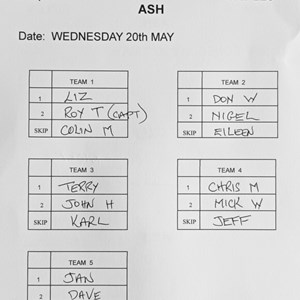 ASH
Date: WEDNESDAY 20th MAY
TEAM 1
1 LIZ
2 ROY T (CAPT)
SKIP COLIN M
TEAM 2
1 DON W
2 NIGEL
SKIP EILEEN
TEAM 3
1 TERRY
2 JOHN H
SKIP KARL
TEAM 4
1 CHRIS M
2 MICK W
SKIP JEFF
TEAM 5
1 JAN
2 DAVE